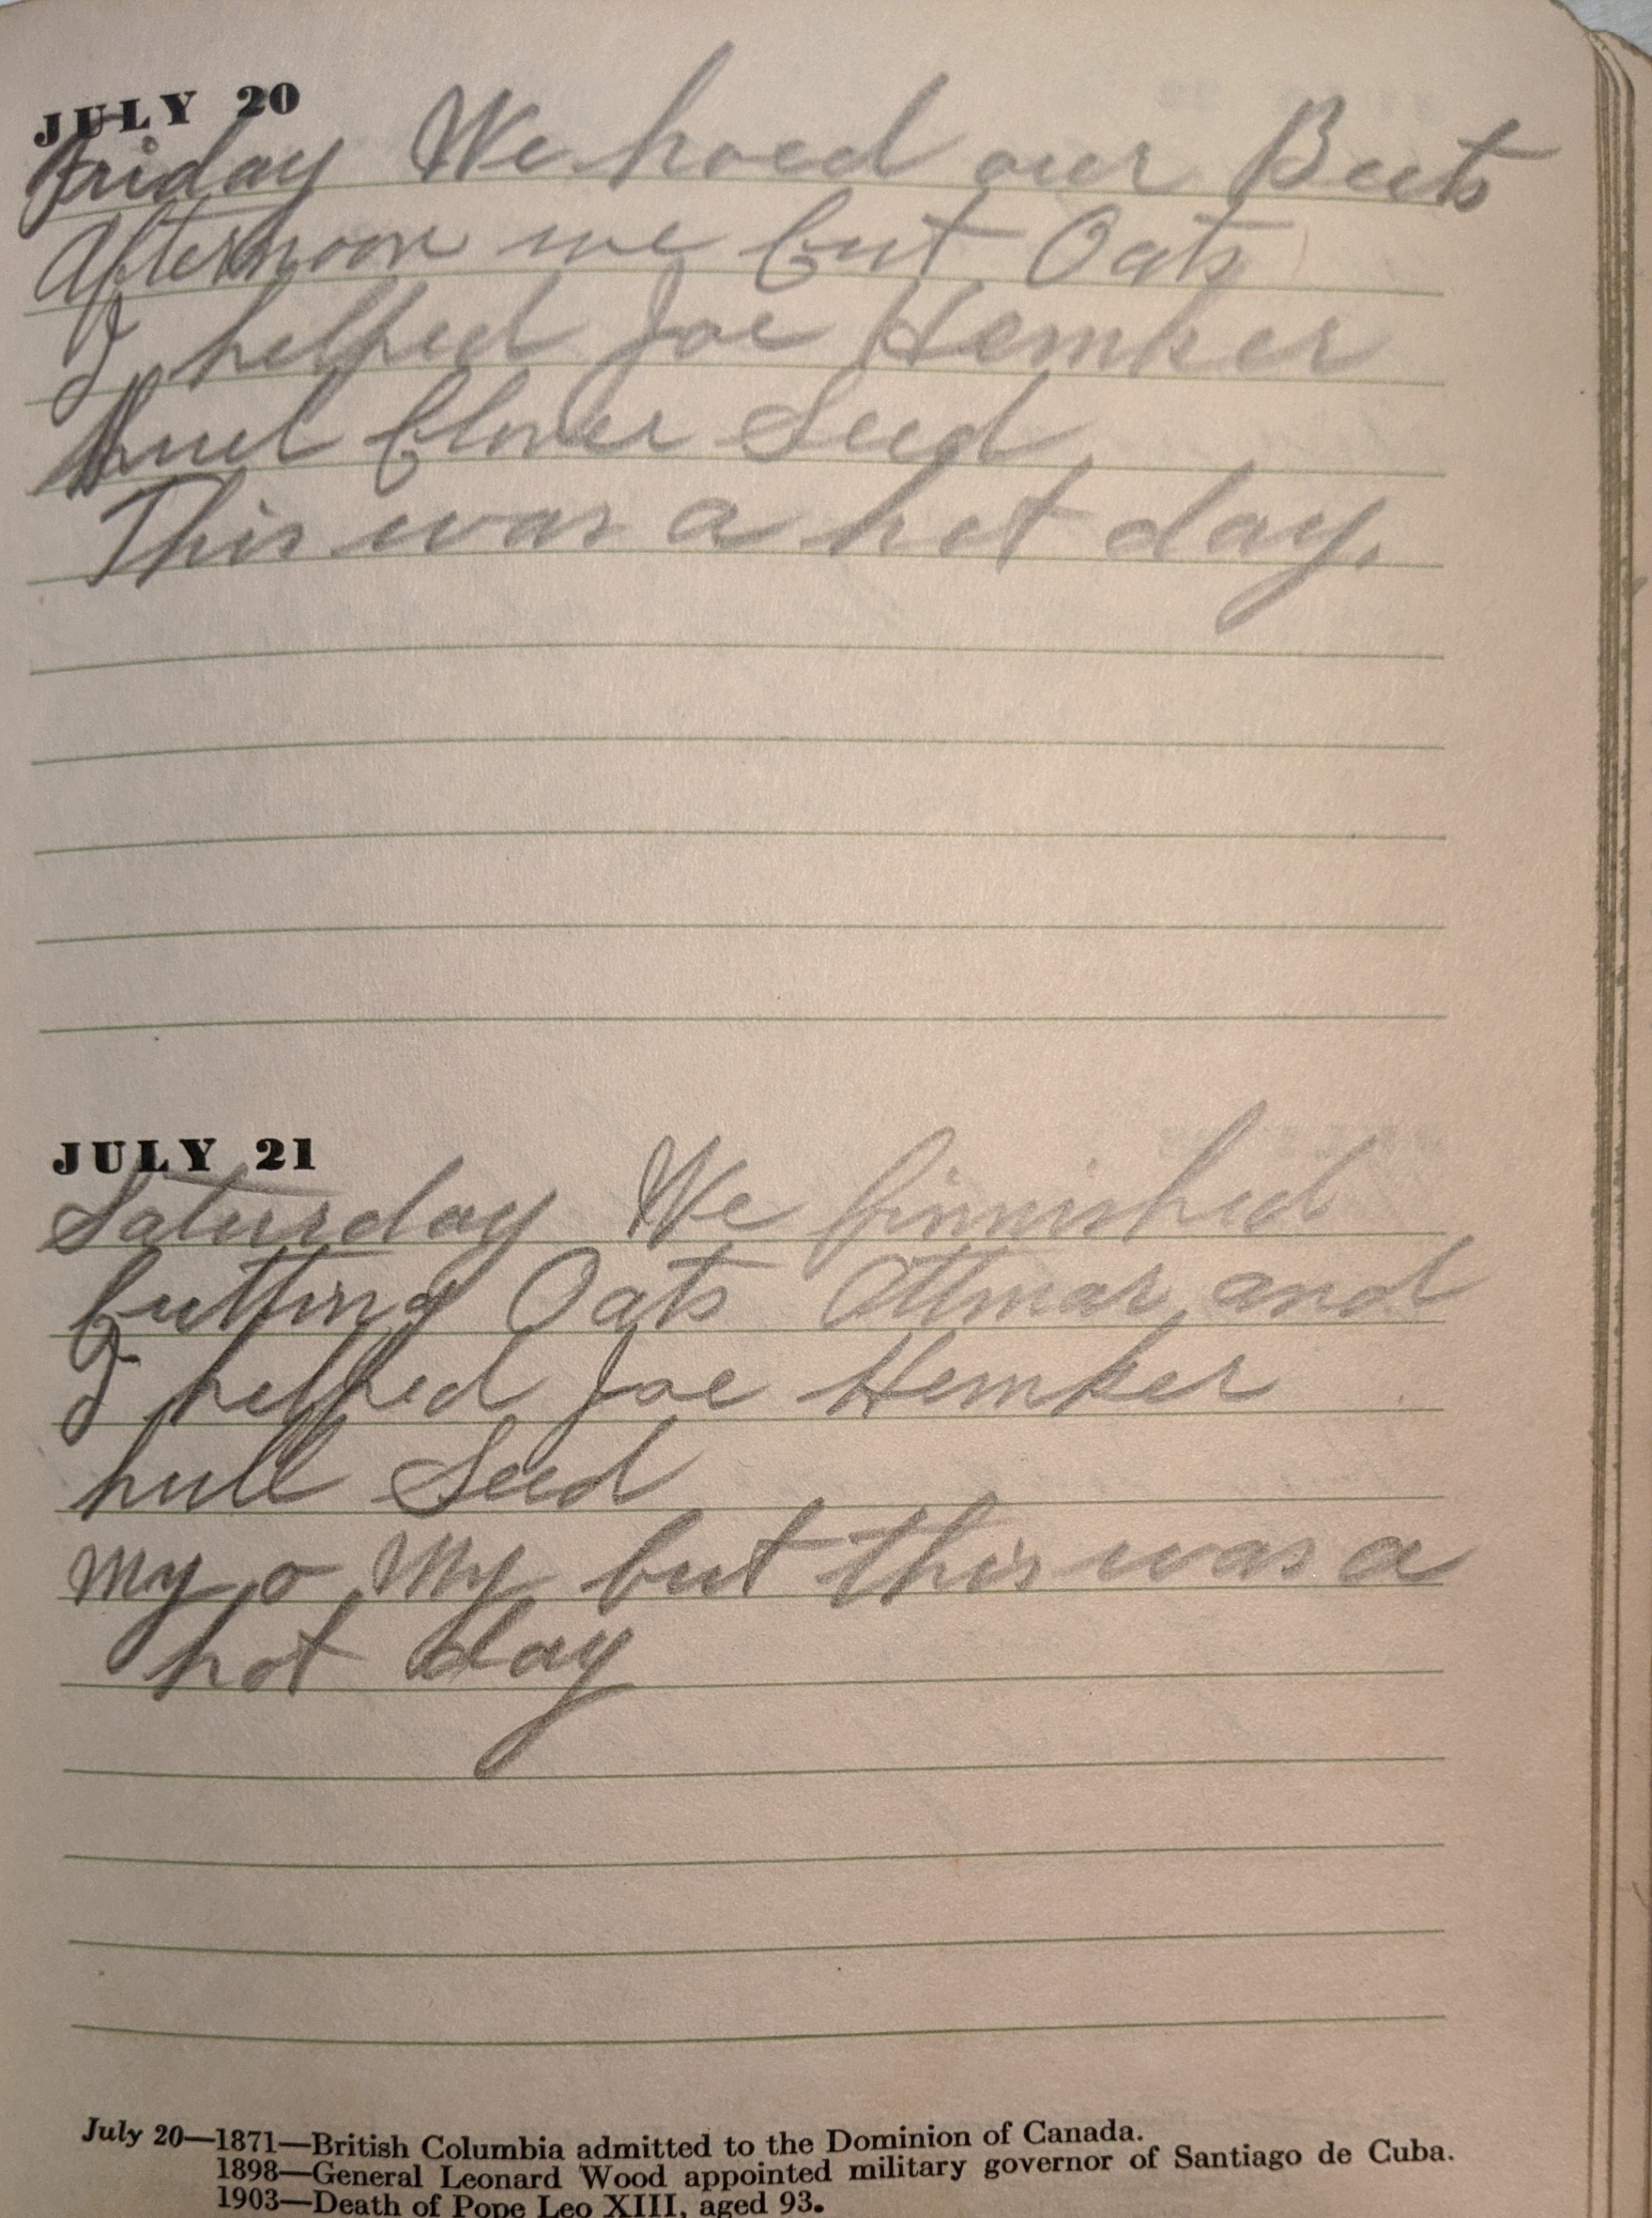 JULY 20
Friday We hoed our Beets
Afternoon we Cut Oats
I helped Joe Hemker
Clover Seed
This was a hot day.
JULY 21
Saturday We finnished
Cutting Oats Ottmar and
I helped Joe Hemker
hull Seed
My o My but this was a
hot day
July 20—1871—British Columbia admitted to the Dominion of Canada.
1898—General Leonard Wood appointed military governor of Santiago de Cuba.
1903—Death of Pope Leo XIII, aged 93.